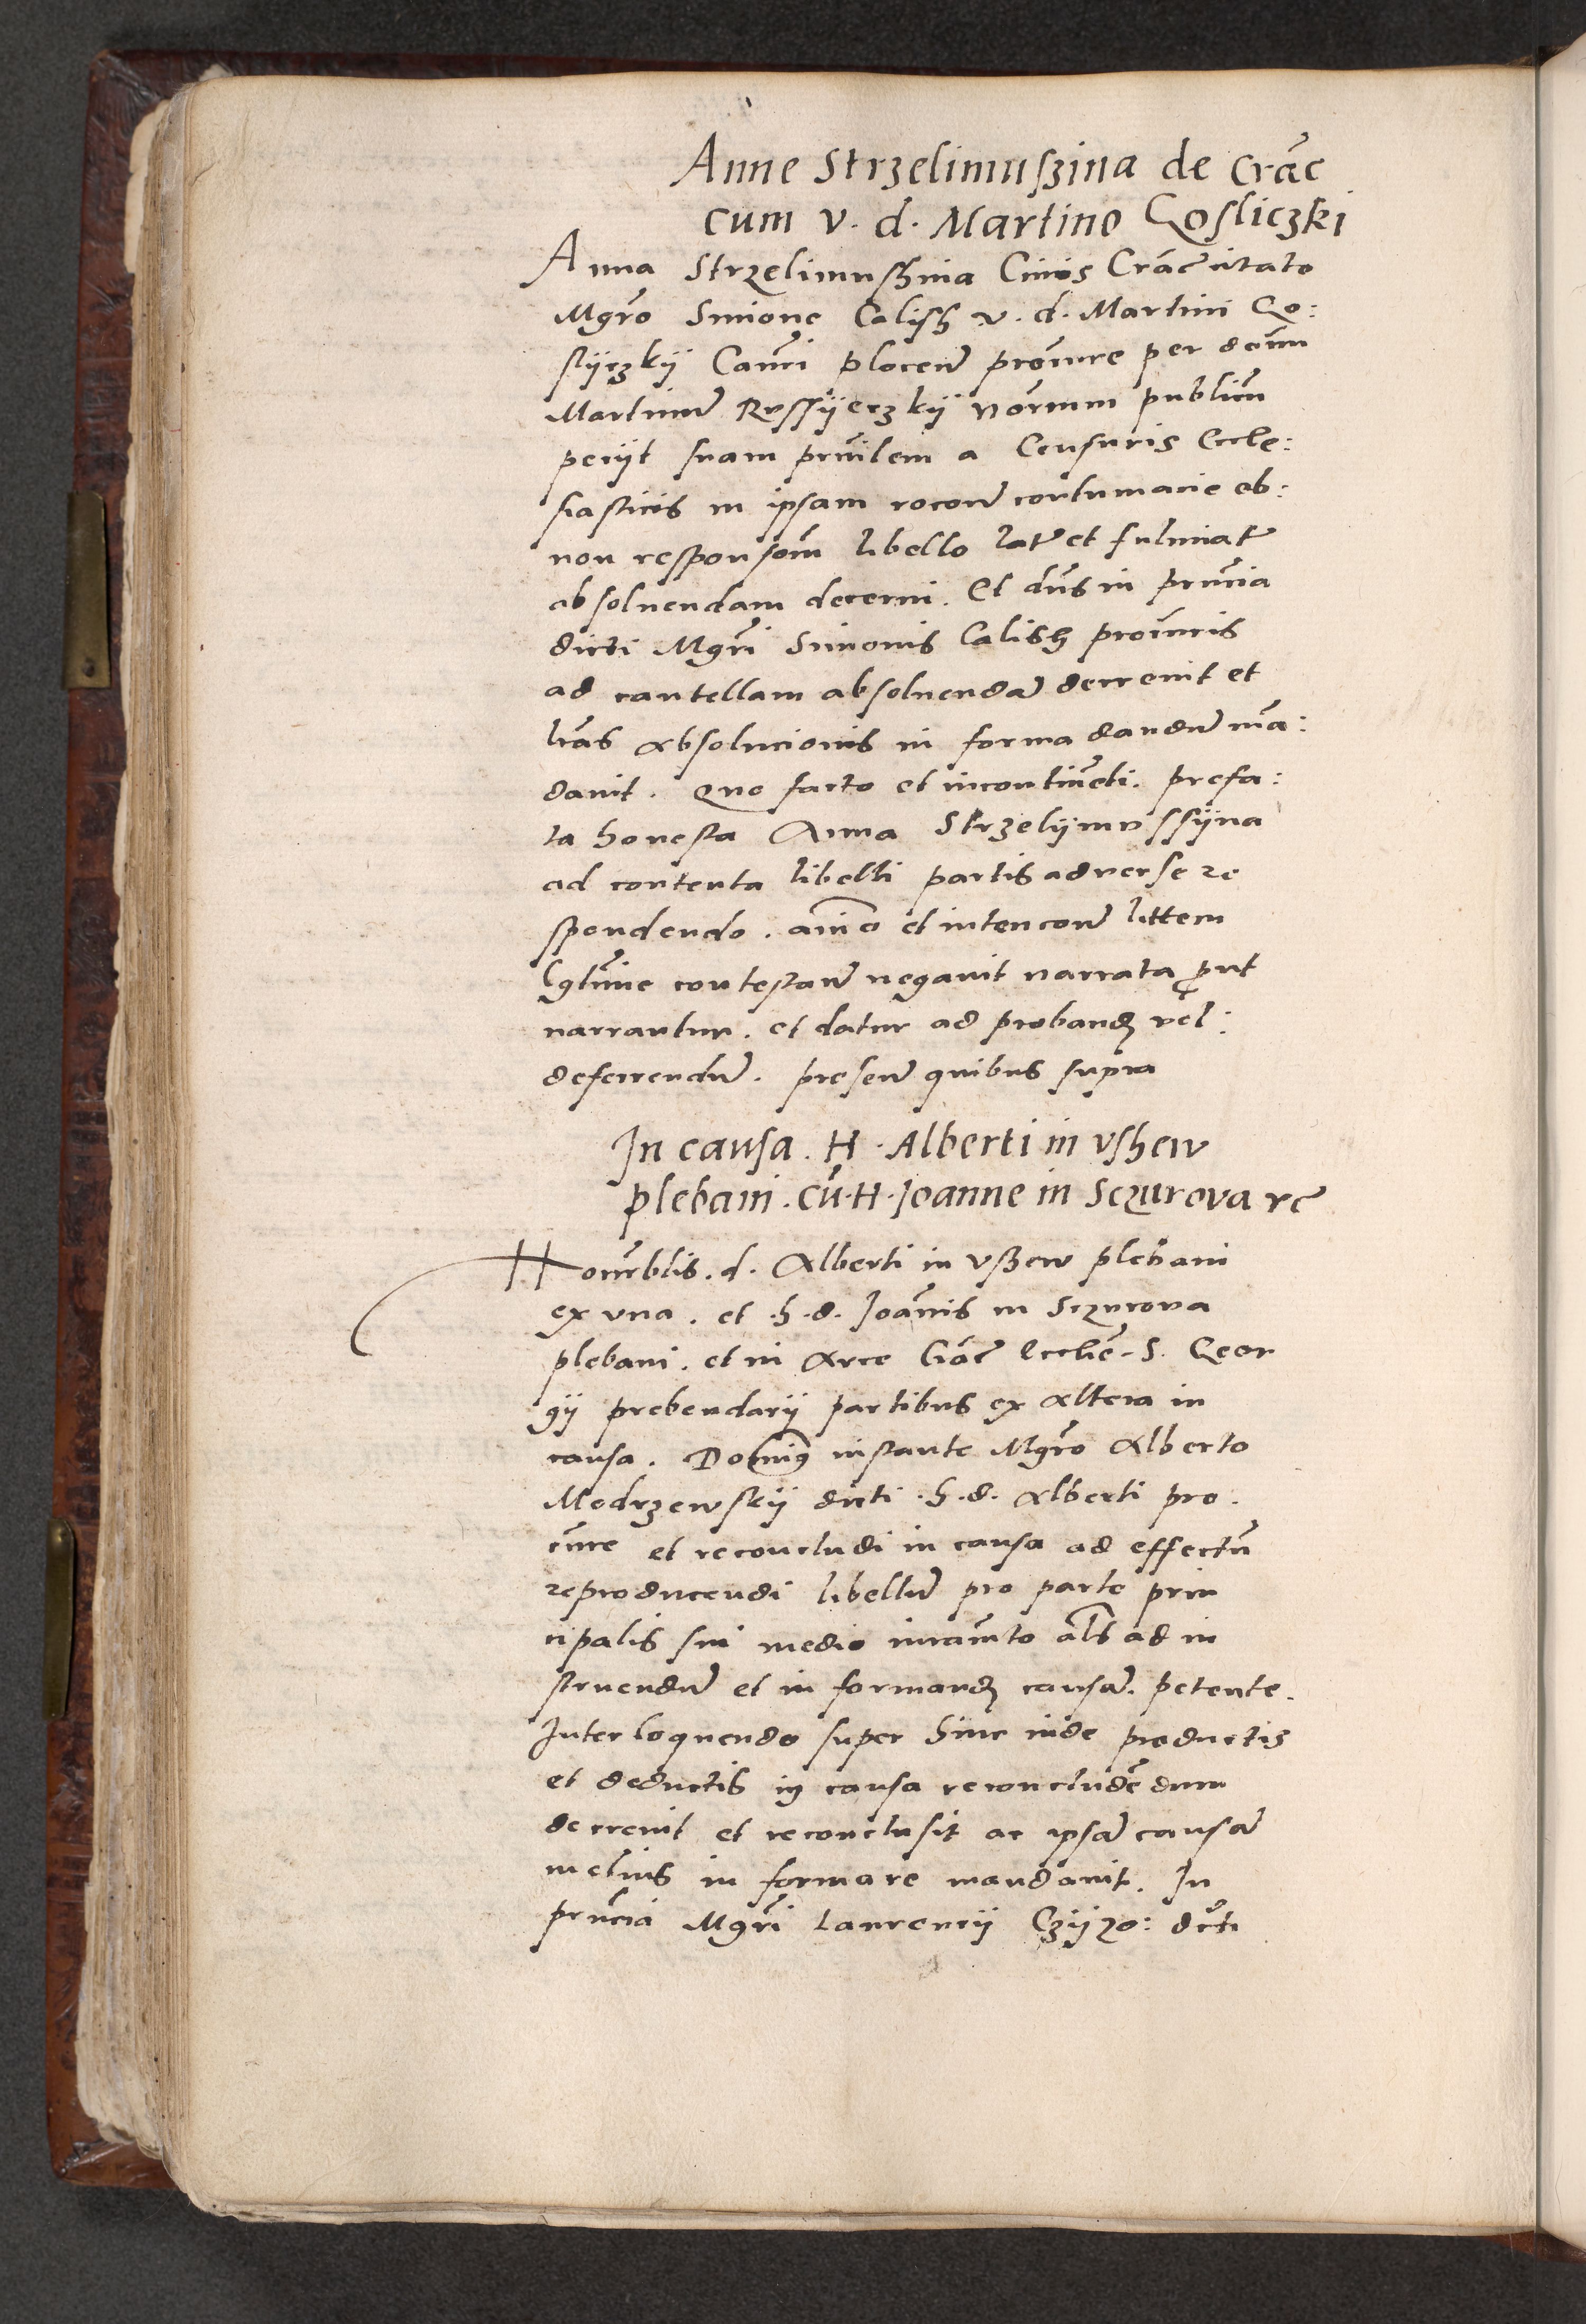 Anne Strzelimuszina de Crac̃
cum v. d. Martino Gosliczki
Anna Strzelimushina Civis Crac̃ citato
Mgr̃o Simone Calish v. d. Martini Go:
slyczkÿ Can̄ci plocen̄ procūre per dominū
Martinum̄ RussÿeczkÿNõrium publicū
petÿt suam prn̄cilem a Censuris Eccle:
siasticis in ipsam rac̃one contumacie ob:
non responsom̄ libello lat̄ et fulminat̄
absoluendam decerni. Et dn̄s in prn̄cia
dicti Mgr̃i Simonis Calish procūris
ad cautellam absoluendam̄ decreuit et
lr̃as absolucionis in forma dandum̄ mā:
dauit. Quo facto et incontinẽti. prefa:
ta honesta Anna Strzelÿmussÿna
ad contenta libelli partis aduerse re
spondendo. aīo et intencone littem
lgt̃ime contestan̄ negauit narrata ꝓut
narrantur. et datur ad proband vel:
deferrendum̄. presen̄ quibus supra
In causa. H. Alberti in vshew
plebani. cū. H. Joanne in Sczurova rc̃
Honr̃blis. d. Alberti in vszew plebani
ex vna. et .h.d. Joañis in Sczurova
plebani. et in Arce Crac̃ Ecclie̅ S. Geor
gÿ prebendarÿ partibus ex altera in
causa. Domin9 instante Mgr̃o Alberto
Modrzewskÿ dicti .h.d. Alberti pro.
cūre et reconcludi in causa ad effectū
reproducendi libellum̄ pro parte prin
cipalis sui medio iuram̄to als̃ ad in
struendum̄ et in formand causam̄. petente.
Interloquendo super hinc inde productis
et deductis in causa reconcludẽdum
decreuit et reconclusit ac ipsam̄ causam̄
melius in formare mandauit. In
prn̄cia Mgr̃i Laurencÿ Czÿzo: dc̃ti